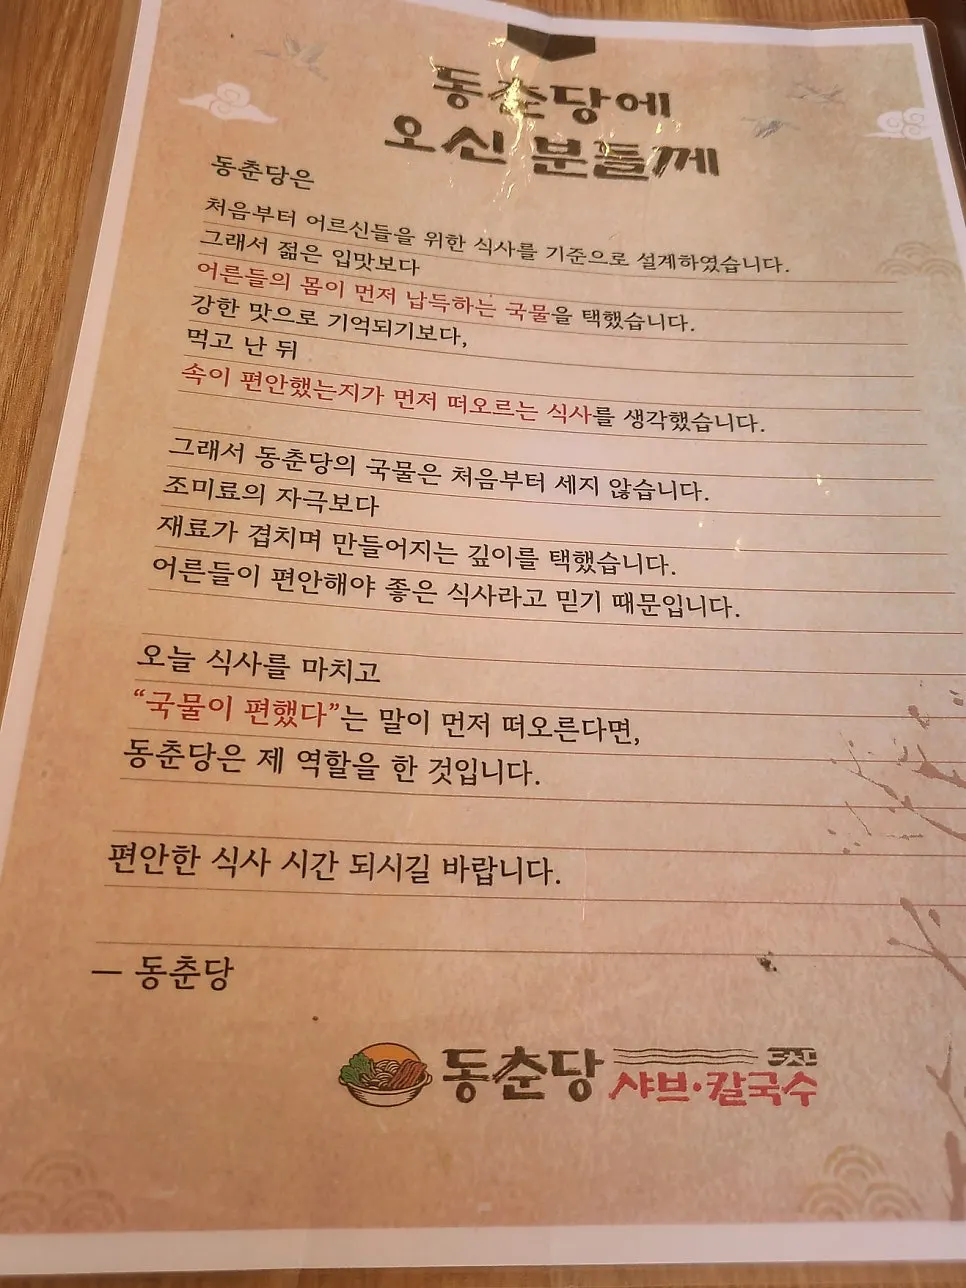 동춘당에
오신 분들께
동춘당은
처음부터 어르신들을 위한 식사를 기준으로 설계하였습니다.
그래서 젊은 입맛보다
어른들의 몸이 먼저 납득하는 국물을 택했습니다.
강한 맛으로 기억되기보다,
먹고 난 뒤
속이 편안했는지가 먼저 떠오르는 식사를 생각했습니다.
그래서 동춘당의 국물은 처음부터 세지 않습니다.
조미료의 자극보다
재료가 겹치며 만들어지는 깊이를 택했습니다.
어른들이 편안해야 좋은 식사라고 믿기 때문입니다.
오늘 식사를 마치고
“국물이 편했다”는 말이 먼저 떠오른다면,
동춘당은 제 역할을 한 것입니다.
편안한 식사 시간 되시길 바랍니다.
— 동춘당
동춘당 샤브·칼국수